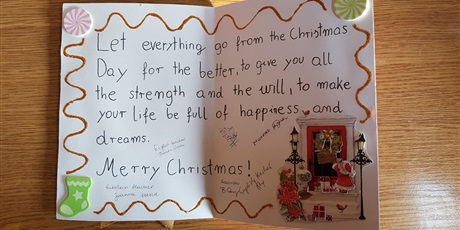 Let everything go from the Christmas
Day for the better, to give you all
the strength and the will, to make
your life be full of happiness and
dreams.
Merry Christmas!